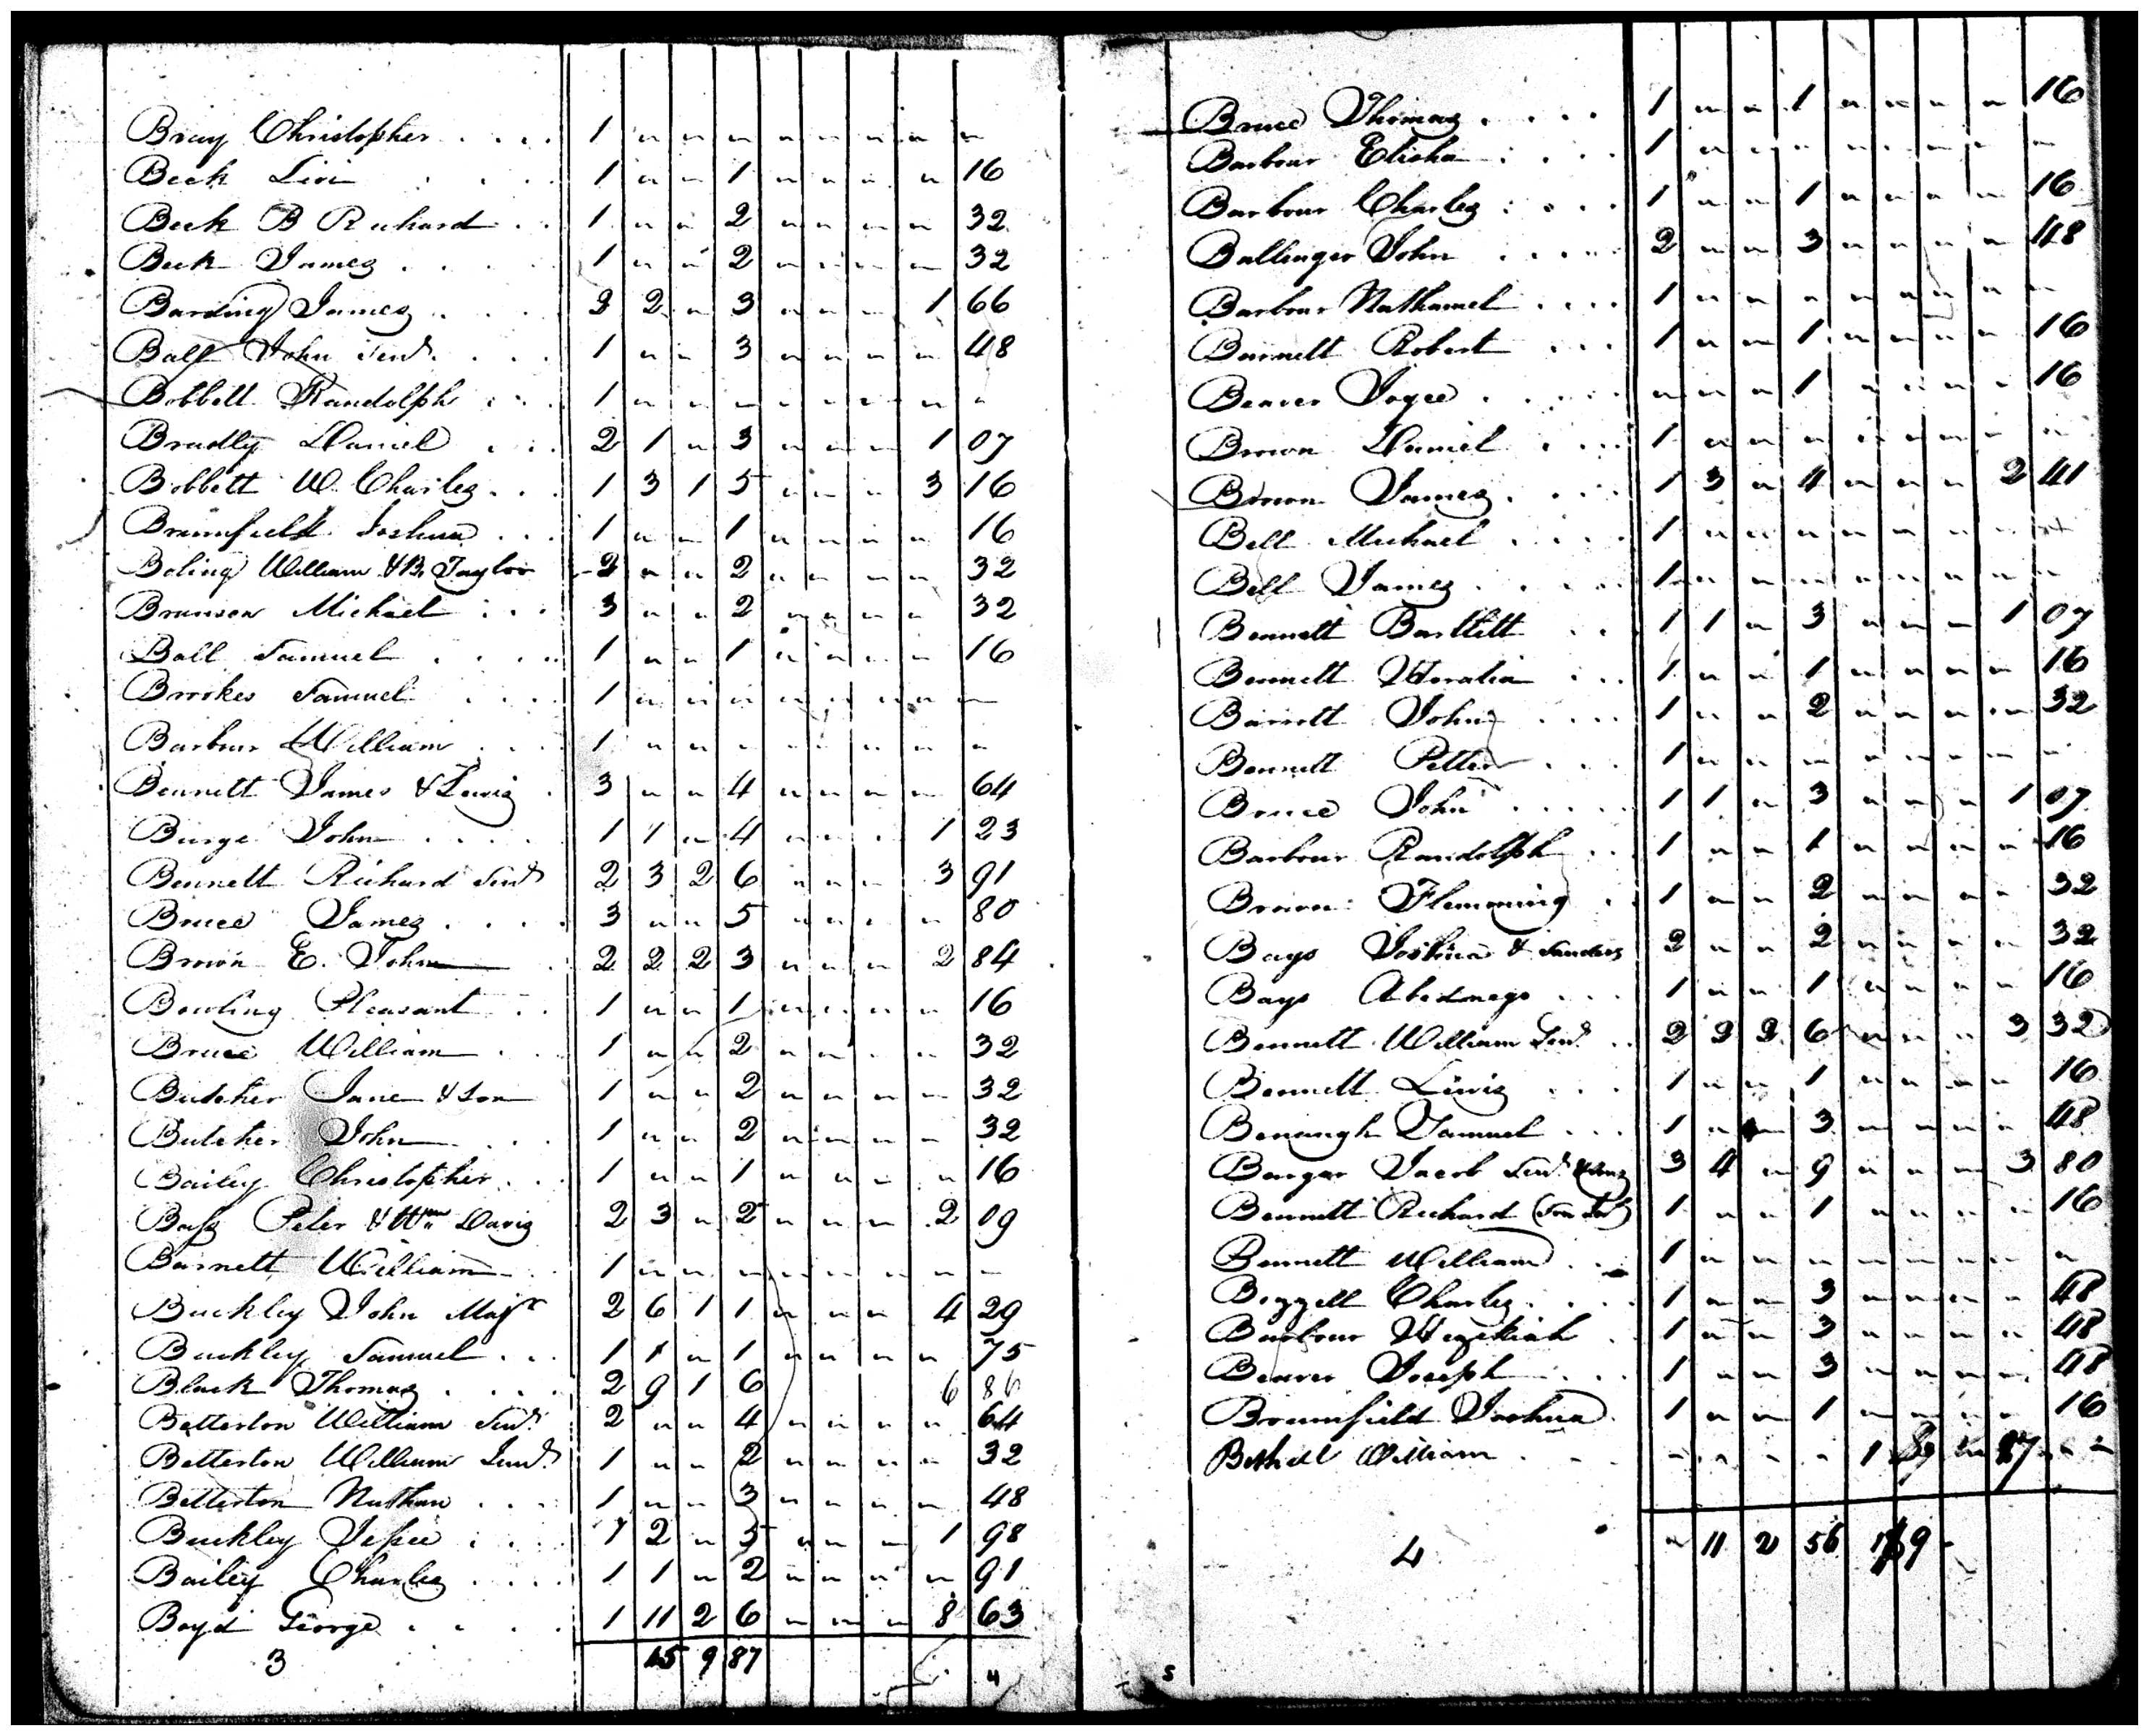 Bray Christopher . . . . 1 " " " " " " " "
Beck Levi . . . . 1 " " 1 " " " " 16
Beck B Richard . . 1 " " 2 " " " " 32
Beck James . . . . 1 " " 2 " " " " 32
Barding James . . . . 2 2 " 3 " " " 1 66
Ball John Senr. . . . 1 " " 3 " " " " 48
Bobbett Randolph . . . 1 " " " " " " " "
Bradly Daniel . . . 2 1 " 3 " " " 1 07
Bobbett W. Charles . . . 1 3 1 5 " " " 3 16
Brumfield Joshua . . . 1 " " 1 " " " " 16
Boling William & B. Taylor 2 " " 2 " " " " 32
Brunson Michael . . . 3 " " 2 " " " " 32
Ball Samuel . . . . 1 " " 1 " " " " 16
Brookes Samuel . . . 1 " " " " " " " "
Barbour William . . . 1 " " " " " " " "
Bennett James & Lewis . 3 " " 4 " " " " 64
Burge John . . . . 1 1 " 4 " " " 1 23
Bennett Richard Senr 2 3 2 6 " " " 3 91
Bruce James . . . . 3 " " 5 " " " " 80
Brown E. John . 2 2 2 3 " " " 2 84
Bowling Pleasant . . 1 " " 1 " " " " 16
Bruce William . . . 1 " " 2 " " " " 32
Butcher Jane & Son 1 " " 2 " " " " 32
Butcher John . . . 1 " " 2 " " " " 32
Bailey Christopher . . 1 " " 1 " " " " 16
Bass Peter & Wm Davis 2 3 " 2 " " " 2 09
Barnett William . 1 " " " " " " " "
Buckley John Majr 2 6 1 1 " " " 4 29
Buckley Samuel . . . 1 1 " 1 " " " " 75
Black Thomas . . . . 2 9 1 6 6 86
Betterton William Senr. 2 " " 4 " " " " 64
Betterton William Junr. 1 " " 2 " " " " 32
Betterton Nathan . . . 1 " " 3 " " " " 48
Buckley Jesse . . . . 1 2 " 3 " " " 1 98
Bailey Charles . . . . 1 1 " 2 " " " " 91
Boyd George . . . . 1 11 2 6 " " " 8 63
3 45 9 87
4
Bruce Thomas . . . . 1 " " 1 " " " " 16
Barbour Elisha . . . . 1 " " " " " " " "
Barbour Charles . . . . 1 " " 1 " " " " 16
Ballinger John . . . . 2 " " 3 " " " " 48
Barbour Nathaniel . . . . 1 " " " " " " " "
Barnett Robert . . . 1 " " 1 " " " " 16
Beaver Joyce . . . . " " " 1 " " " " 16
Brown Daniel . . . . 1 " " " " " " " "
Brown James . . . . 1 3 " 4 " " " 2 41
Bell Michael . . . . 1 " " " " " " " "
Bell James . . . . 1 " " " " " " " "
Bennett Bartlett . . 1 1 " 3 " " " 1 07
Bennett Horatia . . . 1 " " 1 " " " " 16
Barrott John . . . . 1 " " 2 " " " " 32
Bennett Petter . . . 1 " " " " " " " "
Bruce John . . . . 1 1 " 3 " " " 1 07
Barbour Randolph . . 1 " " 1 " " " " 16
Brown Flemming . 1 " " 2 " " " " 32
Bays Joshua & Sanders 2 " " 2 " " " " 32
Bays Abednego . . . 1 " " 1 " " " " 16
Bennett William Senr. . . 2 2 2 6 " " " 3 32
Bennett Lewis . . . 1 " " 1 " " " " 16
Benaugh Samuel . . . 1 " " 3 " " " " 48
Bargar Jacob Senr & Sons 3 4 " 9 " " " 3 80
Bennett Richard 1 " " 1 " " " " 16
Bennett William . . . 1 " " " " " " " "
Bezzell Charles . . . . 1 " " 3 " " " " 48
Barbour Hezekiah . 1 " " 3 " " " " 48
Beaver Joseph . . . . 1 " " 3 " " " " 48
Brumfield Joshua . 1 " " 1 " " " " 16
Bethell William . . . " " " " 1 " 87 " "
4 " 11 2 56
5